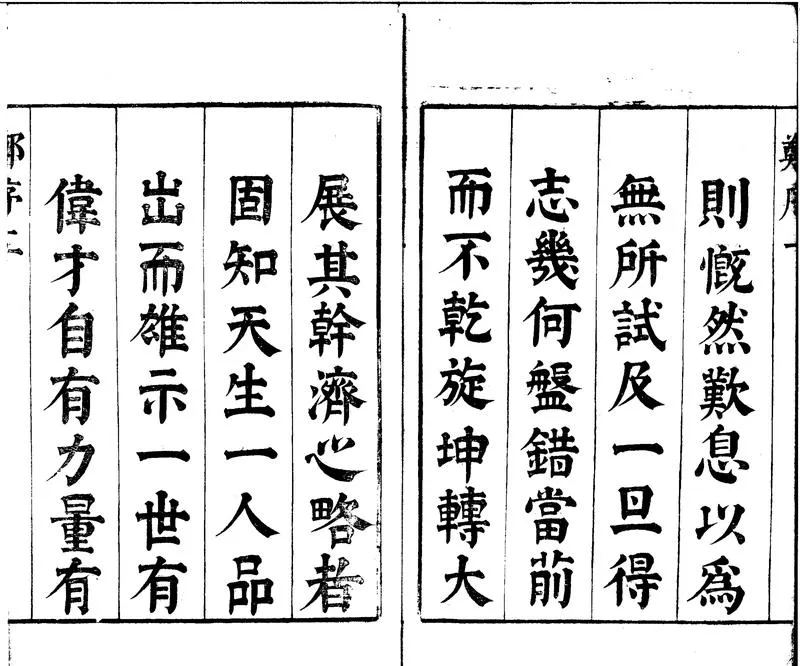 則慨然歎息以為
無所試及一旦得
志幾何盤錯當前
而不乾旋坤轉大
展其幹濟之略者
固知天生一人品
出而雄示一世有
偉才自有力量有